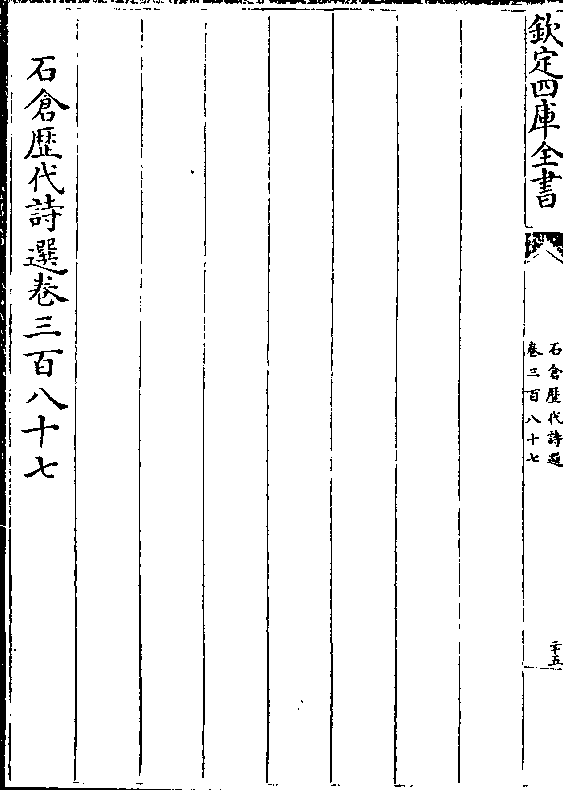 欽定四庫全書
石倉歷代詩選
卷三百八十七
二十五
石倉歷代詩選卷三百八十七